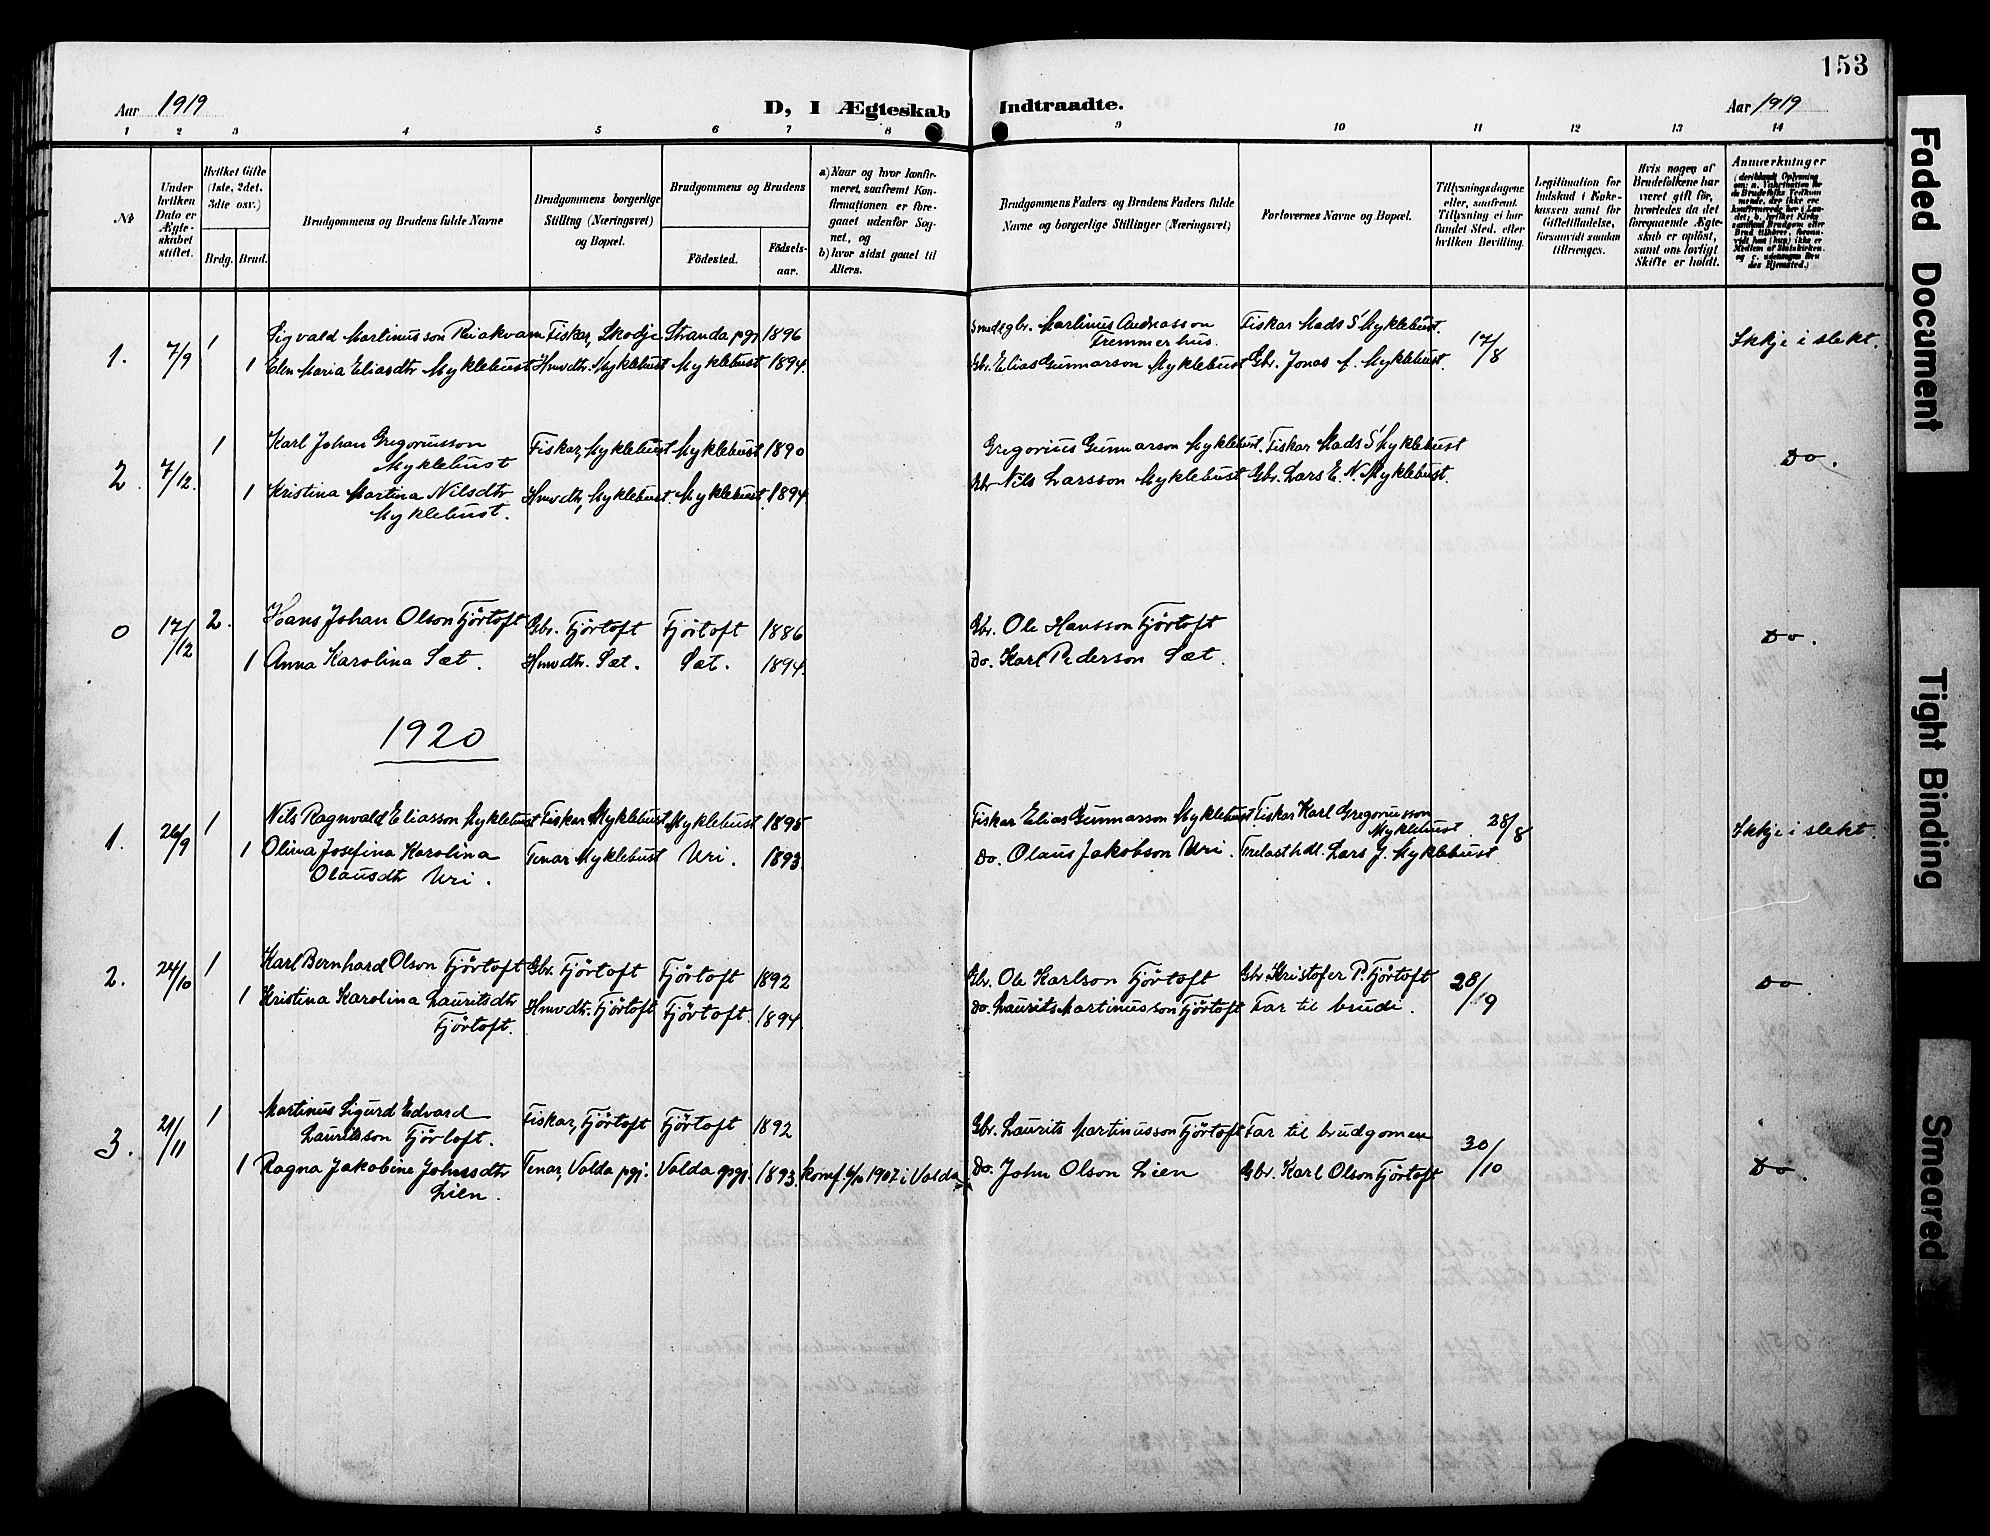 153
Aar 1919
D, I Ægteskab Indtraadte.
Aar 1919
1 2 3 4 5 6 7 8 9 10 11 12 13 14
No
Under hvilken Dato er Ægteskabet stiftet.
Hvilket Gifte (1ste, 2det, 3die osv.)
Brdg. Brud.
Brudgommens og Brudens fulde Navne
Brudgommens borgerlige Stilling (Næringsvei) og Bopæl.
Brudgommens og Brudens
Fødested.
Fødsels-aar.
a) Naar og hvor konfirmeret, saafremt Konfirmationen er foregaaet udenfor Sognet, og
b) hvor sidst gaaet til Alters.
Brudgommens Faders og Brudens Faders fulde Navne og borgerlige Stillinger (Næringsvei)
Forlovernes Navne og Bopæl.
Tillysningsdagene eller, saafremt Tillysning ei har fundet Sted, efter hvilken Bevilling.
Legitimation for Indskud i Enkekassen samt for Giftetilladelse, forsaavidt saadan tiltrænges.
Hvis nogen af Brudefolkene har været gift før, hvorledes da det foregaaende Ægteskab er opløst, samt om lovligt Skifte er holdt.
Anmerkninger
1. 7/9 1 Sigvald Martinusson Fiskar, Skodje Stranda pgj 1896 Martinus Andreasson Fremmerhus. Fiskar Mads S Myklebust. 17/8 Ikkje i slekt.
1 Elen Maria Eliasdtr Myklebust Hmvdtr. Myklebust Myklebust 1894. Gbr. Elias Gunnarson Myklebust Gbr. Jonas A. Myklebust.
2. 7/12. 1 Karl Johan Gregoriusson Myklebust Fiskar, Myklebust Myklebust 1890 Gregorius Gunnarson Myklebust. Fiskar Mads S Myklebust Do.
1 Kristina Martina Nilsdtr Myklebust. Hmvdtr, Myklebust Myklebust. 1894 Gbr Nils Larsson Myklebust Gbr. Lars E. N. Myklebust.
0 17/12 2. Hans Johan Olson Fjörtoft Gbr. Fjörtoft Fjörtoft 1886 Gbr. Ole Hansson Fjörtoft Do.
1 Anna Karolina Sæt. Hmvdtr. Sæt. Sæt. 1894. Do. Karl Pederson Sæt.
1920
1. 26/9 1 Nils Ragnvald Eliasson Myklebust Fiskar Myklebust Myklebust 1895 Fiskar Elias Gunnarson Myklebust Fiskar Karl Gregoriusson Myklebust 28/8 Ikkje i slekt.
1 Olina Josefina Karolina Olausdtr Uri. Tenar Myklebust Uri. 1893 Do. Olaus Jakobson Uri. Trelasthdl. Lars J. Myklebust
2. 24/10 1 Karl Bernhard Olson Fjörtoft Gbr. Fjörtoft Fjörtoft 1892 Gbr. Ole Karlson Fjörtoft Gbr Kristofer P. Fjörtoft 28/19 Do
1 Kristina Karolina Lauritsdtr Fjörtoft. Hmvdtr. Fjörtoft Fjörtoft. 1894. Do. Laurits Martinusson Fjörtoft Far til brudi.
3. 21/11 1 Martinus Sigurd Edvard Lauritsson Fjörtoft. Fiskar, Fjörtoft Fjörtoft 1892 Gbr. Laurits Martinusson Fjörtoft Far til brudgomen 30/10 Do.
1 Ragna Jakobine Johnsdtr Lien. Tenar, Volda pgj. Volda pgj. 1893. konf. 6/10 1907 i Volda Do. John Olson Lien Gbr. Karl Olson Fjörtoft
Faded Document
Tight Binding
Smeared